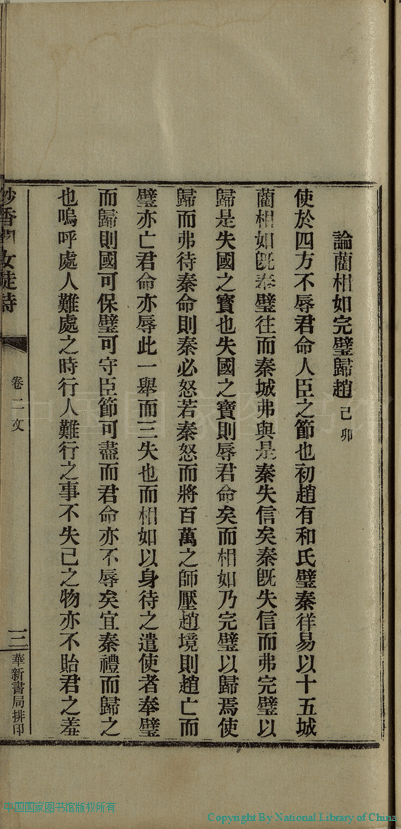 論藺相如完璧歸趙 己卯
使於四方不辱君命人臣之節也初趙有和氏璧秦徉易以十五城
藺相如旣奉璧往而秦城弗與是秦失信矣秦旣失信而弗完璧以
歸是失國之寶也失國之寶則辱君命矣而相如乃完璧以歸焉使
歸而弗待秦命則秦必怒若秦怒而將百萬之師壓趙境則趙亡而
璧亦亡君命亦辱此一舉而三失也而相如以身待之遣使者奉璧
而歸則國可保璧可守臣節可盡而君命亦不辱矣宜秦禮而歸之
也嗚呼處人難處之時行人難行之事不失己之物亦不貽君之羞
香 女徒詩
卷二文
三
華新書局排印
中国国家图书馆版权所有
Copyright By National Library of China